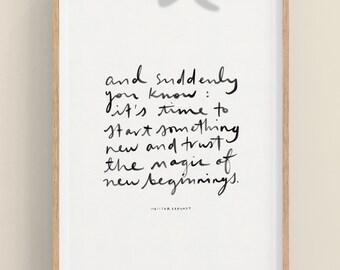 and suddenly
you know:
it's time to
start something
new and trust
the magic of
new beginnings.
MEISTER ECKHART